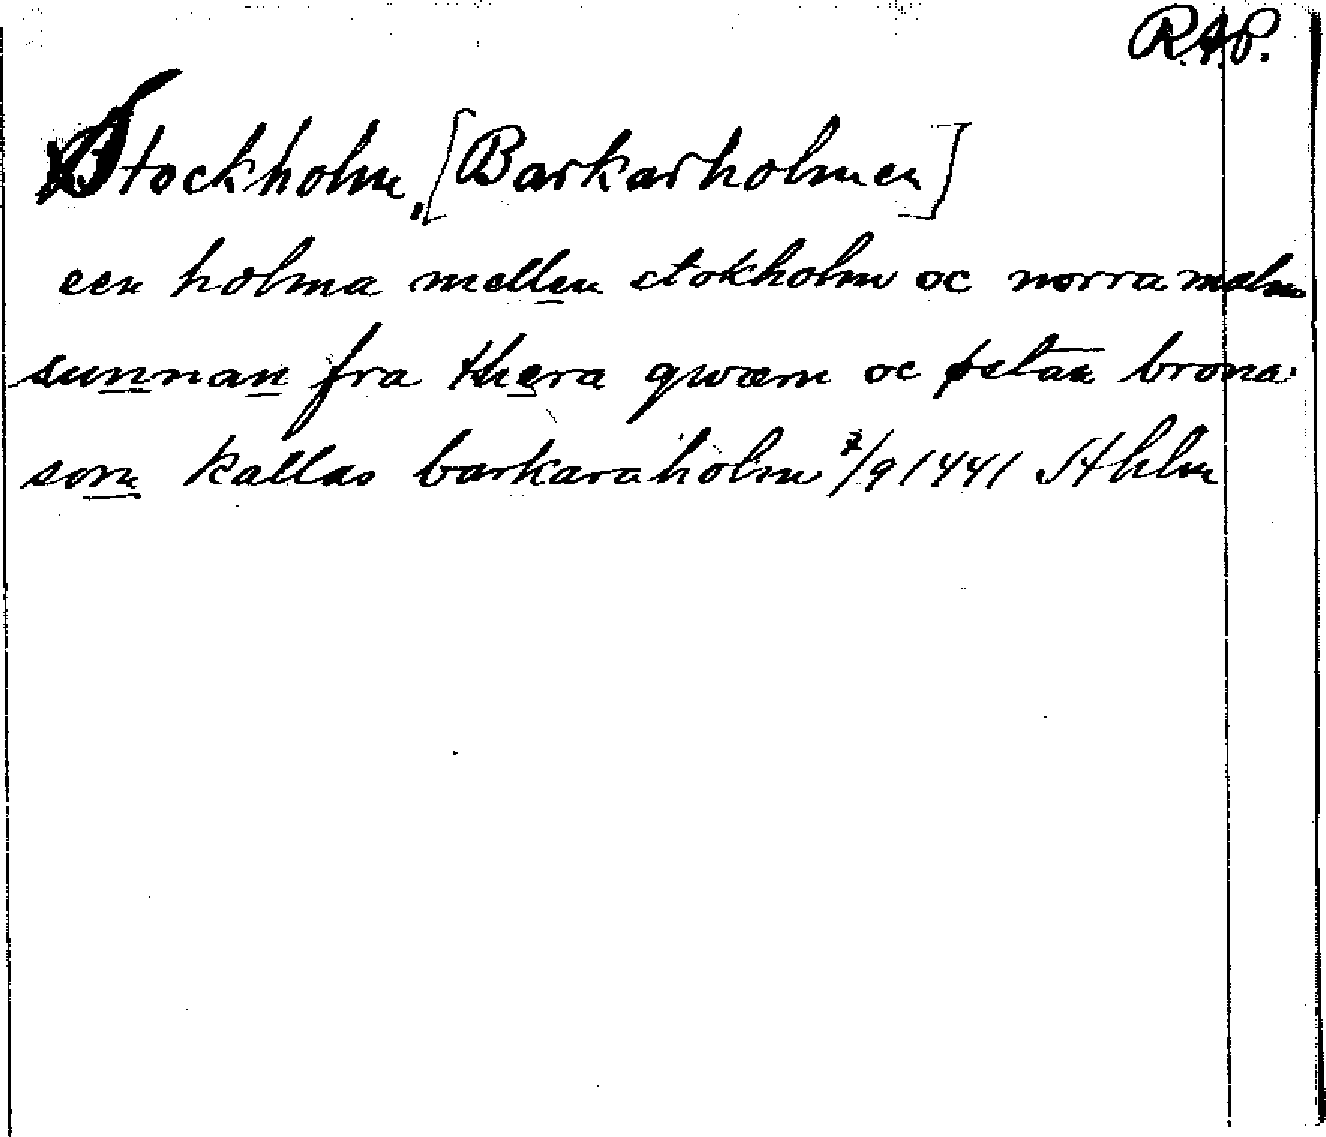 R.A.P.
Stockholm, [Barkarholmen]
een holma mellen stokholm oc norra malm
sunnan fra thera qwærn oc brona
som kallas barkaraholm 7/9 1441 Sthlm